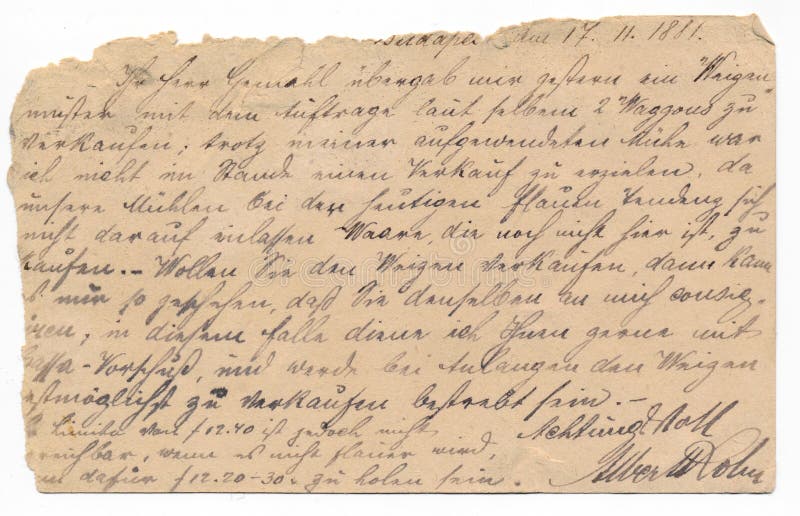 Budape den 17. 11. 1881.
Ihr Herr Gemahl übergab mir gestern ein Weizen
muster mit dem Auftrage laut selbem 2 Waggons zu
verkaufen; trotz meiner aufgewendeten Mühe war
ich nicht im Stande einen Verkauf zu erzielen, da
unsere Mühlen bei der heutigen flauen Tendenz sich
nicht darauf einlassen Waare, die noch nicht hier ist, zu
kaufen. – Wollen Sie den Weizen verkaufen, dann kann
es nur so geschehen, daß Sie denselben an mich consig-
iren; in diesem Falle diene ich Ihnen gerne mit
assa-Vorschuß, und werde bei Anlangen den Weizen
estmöglichst zu verkaufen bestrebt sein. –
Limito von f 12.40 ist jedoch nicht Achtungsvoll
reichbar, wenn es nicht flauer wird,
dafür f 12.20-30 zu holen sein. Albert